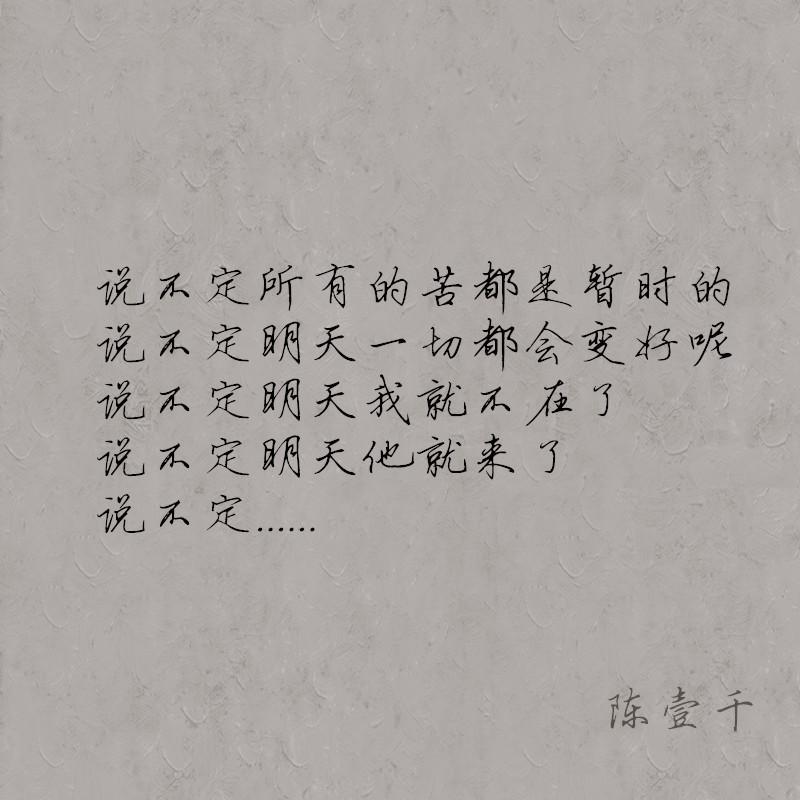 说不定所有的苦都是暂时的
说不定明天一切都会变好呢
说不定明天我就不在了
说不定明天他就来了
说不定......
陈壹千